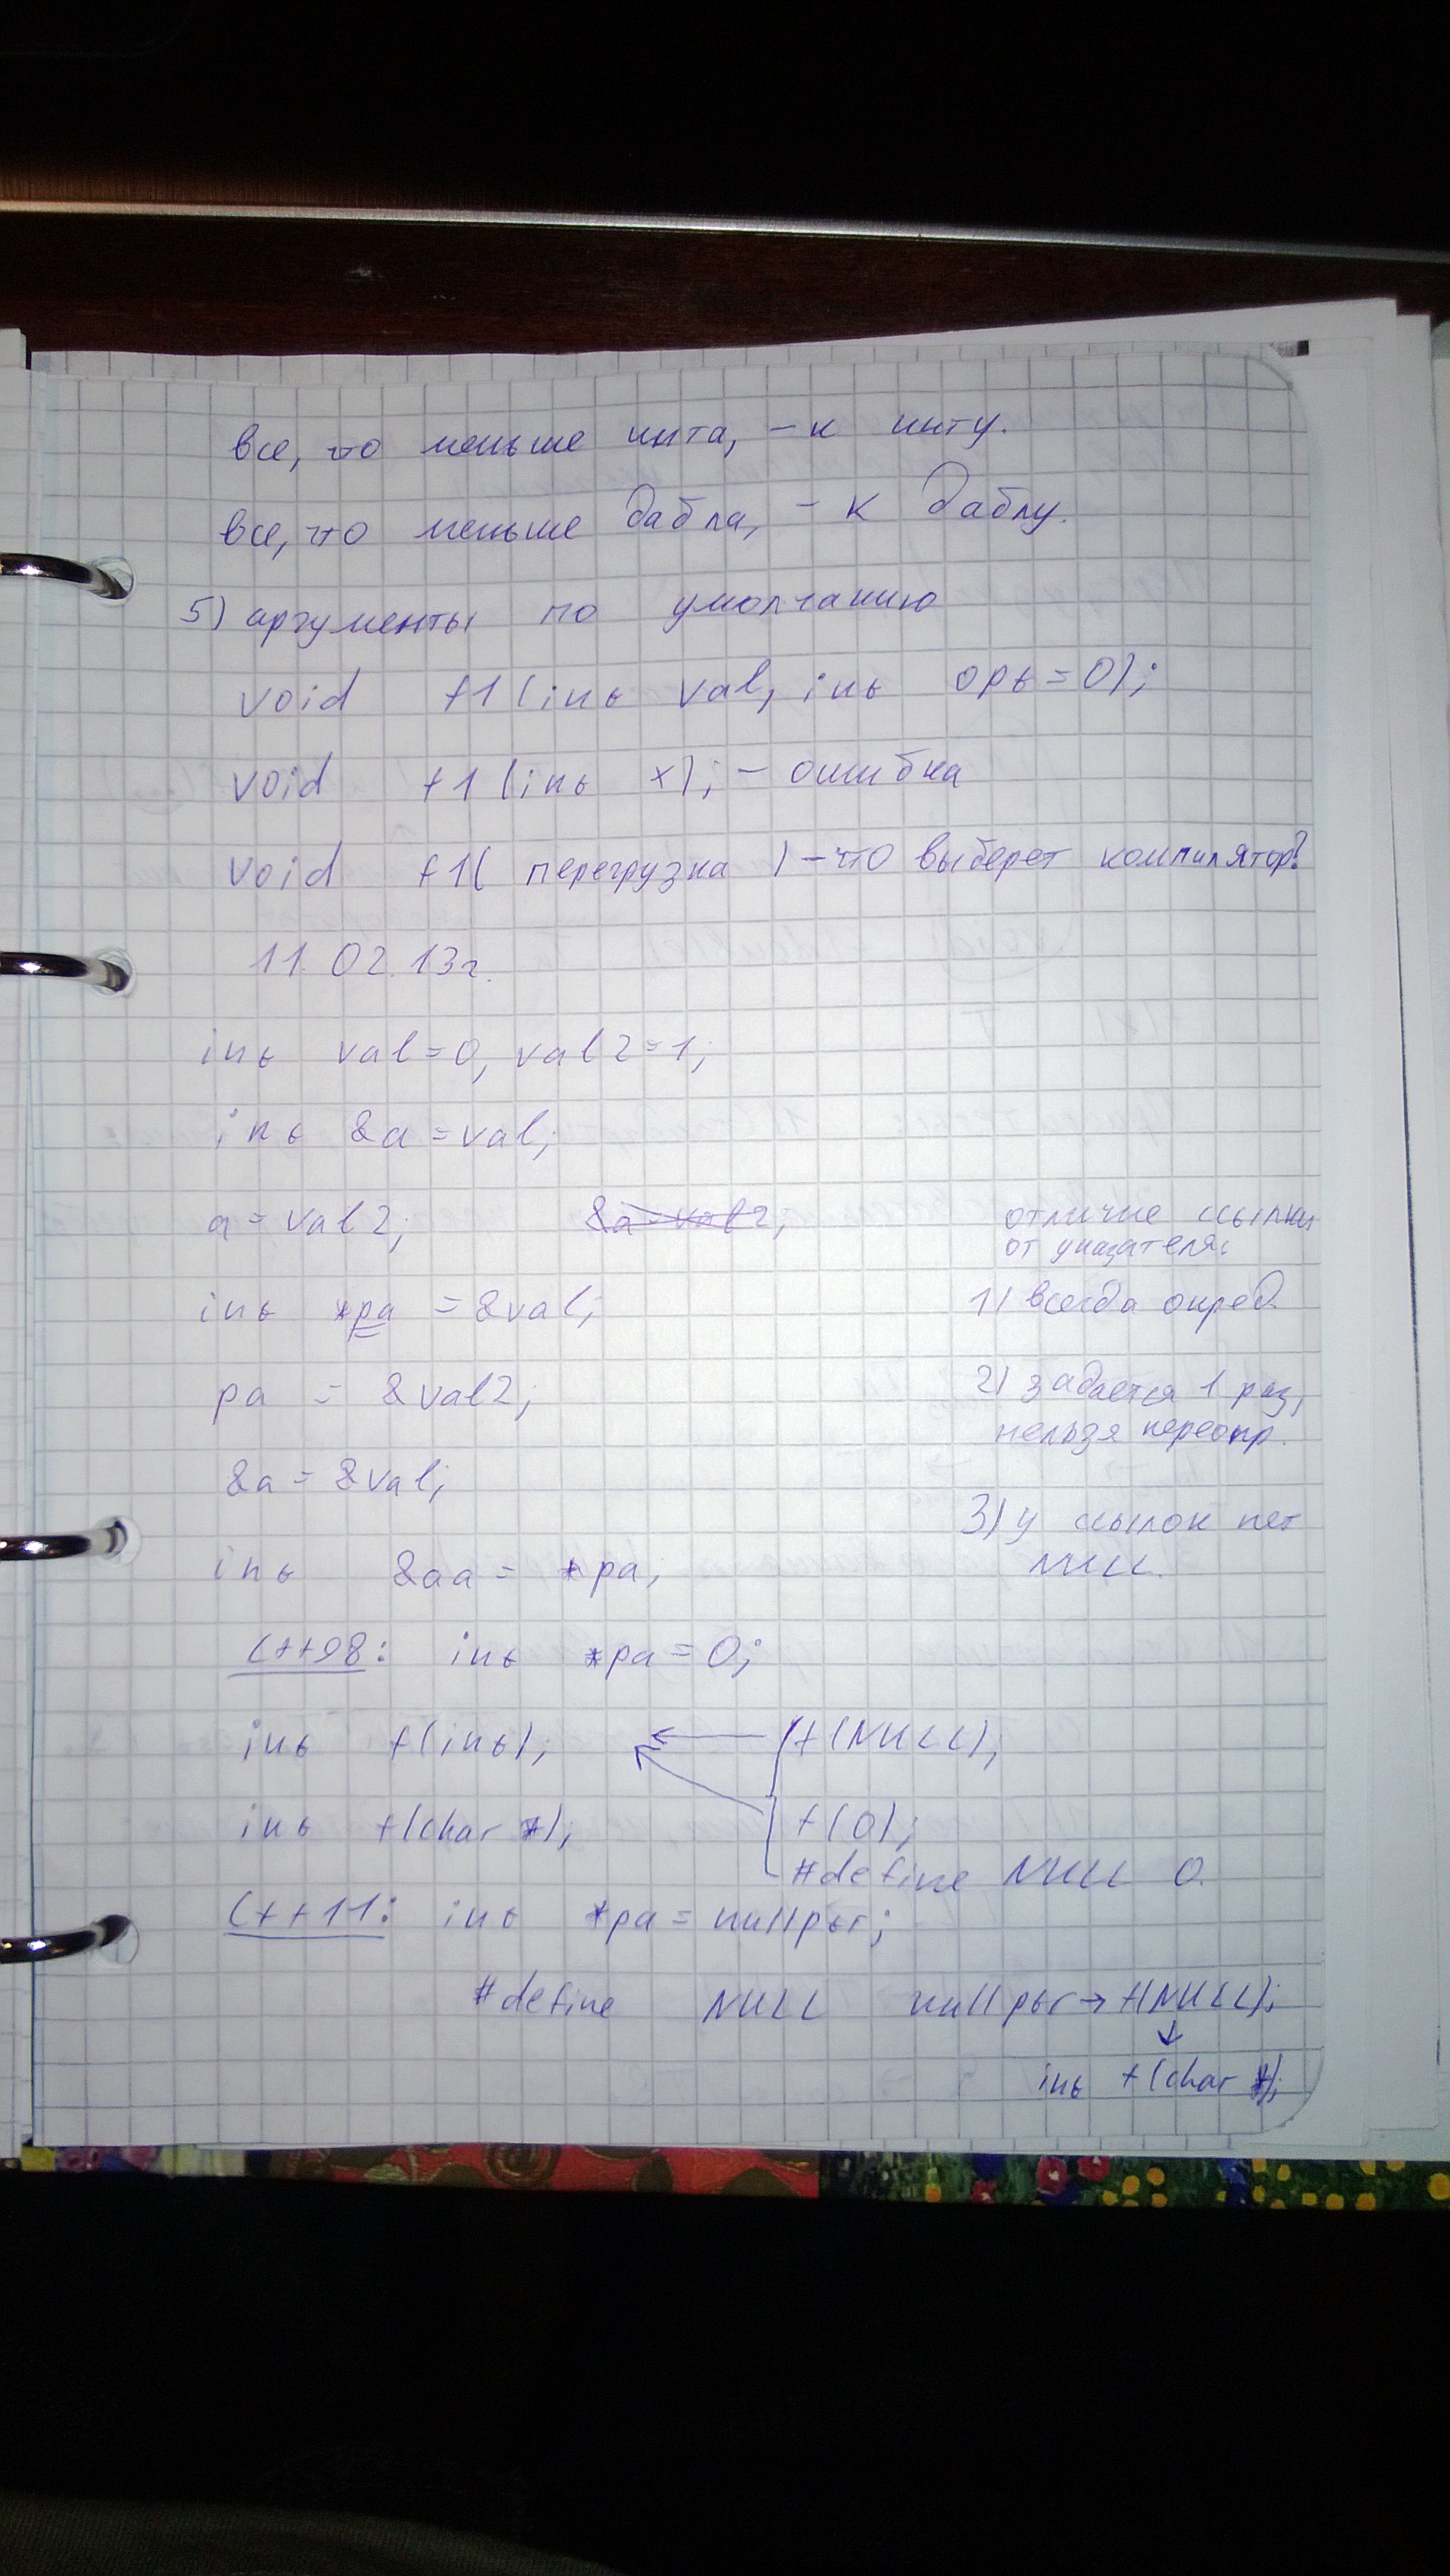 все, что меньше инта, - к инту.
все, что меньше дабла, - к даблу.
5) аргументы по умолчанию
void f1(int val, int opt=0);
void f1(int x); - ошибка
void f1( перегрузка ) - что выберет компилятор?
11.02.13г.
int val=0, val2=1;
int &a=val;
a=val2; &a=val2;
int *pa = &val;
pa = &val2;
&a = &val;
int &aa = *pa;
отличие ссылки
от указателя:
1) всегда опред.
2) задается 1 раз,
нельзя переопр.
3) у ссылок нет
NULL.
C++98: int *pa=0;
int f(int); ← f(NULL);
int f(char *); f(0);
#define NULL 0.
C++11: int *pa = nullptr;
#define NULL nullptr → f(NULL);
↓
int f(char *);